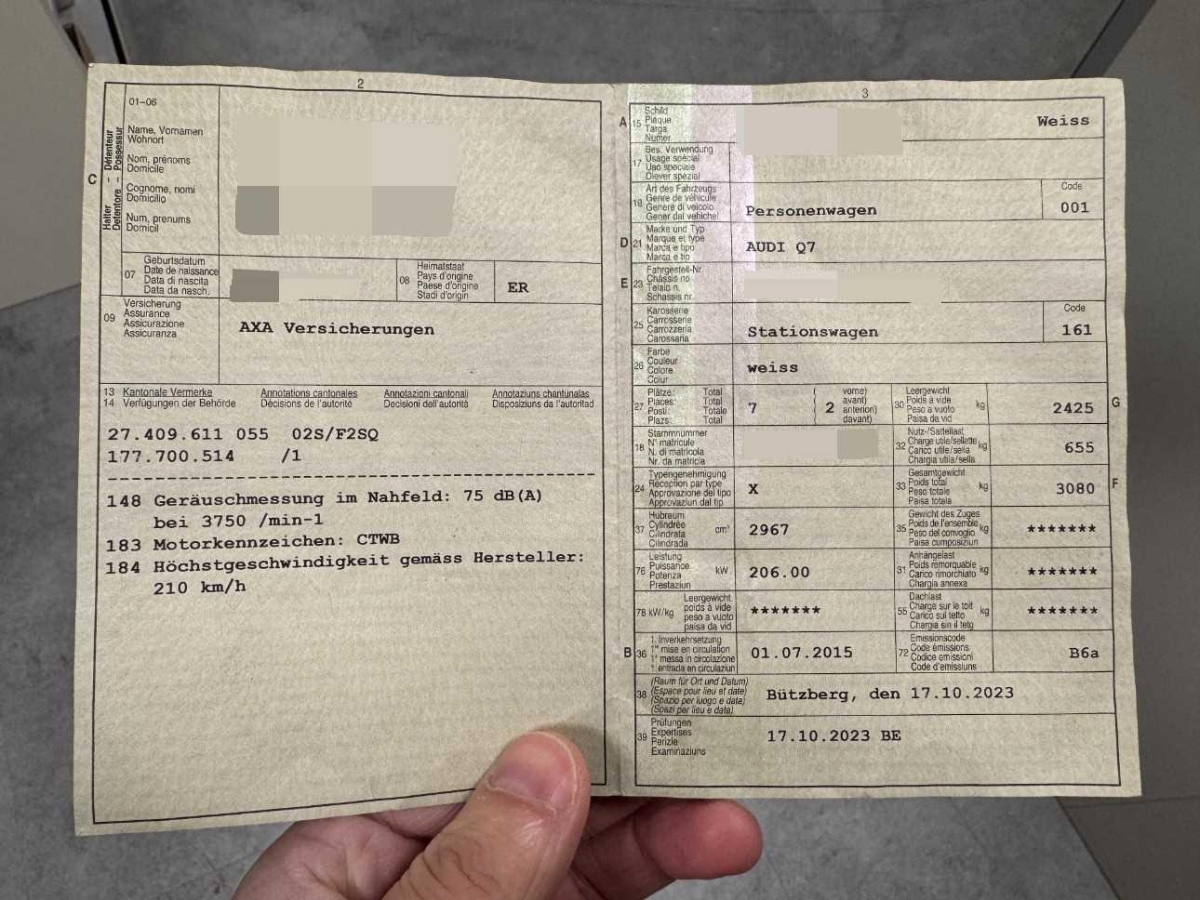 2
01–06
C
Halter – Détenteur
Detentore – Possessur
Name, Vornamen
Wohnort
Nom, prénoms
Domicile
Cognome, nomi
Domicilio
Num, prenums
Domicil
07
Geburtsdatum
Date de naissance
Data di nascita
Data da nasch.
08
Heimatstaat
Pays d'origine
Paese d'origine
Stadi d'origin
ER
09
Versicherung
Assurance
Assicurazione
Assicuranza
AXA Versicherungen
13 Kantonale Vermerke Annotations cantonales Annotazioni cantonali Annotaziuns chantunalas
14 Verfügungen der Behörde Décisions de l'autorité Decisioni dell'autorità Disposiziuns da l'autoritad
27.409.611 055 02S/F2SQ
177.700.514 /1
148 Geräuschmessung im Nahfeld: 75 dB(A)
bei 3750 /min-1
183 Motorkennzeichen: CTWB
184 Höchstgeschwindigkeit gemäss Hersteller:
210 km/h
3
A 15
Schild
Plaque
Targa
Numer
Weiss
17
Bes. Verwendung
Usage spécial
Uso speciale
Diever spezial
19
Art des Fahrzeugs
Genre de véhicule
Genere di veicolo
Gener dal vehichel
Personenwagen
Code
001
D 21
Marke und Typ
Marque et type
Marca e tipo
Marca e tip
AUDI Q7
E 23
Fahrgestell-Nr.
Châssis no
Telaio n.
Schassis nr.
25
Karosserie
Carrosserie
Carrozzeria
Carossaria
Stationswagen
Code
161
26
Farbe
Couleur
Colore
Colur
weiss
27
Plätze: Total
Places: Total
Posti: Totale
Plazs: Total
7
2
(vorne)
avant)
anteriori)
davant)
30
Leergewicht
Poids à vide
Peso a vuoto
Paisa da vid
kg
2425
G
18
Stammnummer
N° matricule
N. di matricola
Nr. da matricla
32
Nutz-/Sattellast
Charge utile/sellette
Carico utile/sella
Chargia utila/sella
kg
655
24
Typengenehmigung
Réception par type
Approvazione del tipo
Approvaziun dal tip
X
33
Gesamtgewicht
Poids total
Peso totale
Paisa totala
kg
3080
F
37
Hubraum
Cylindrée
Cilindrata
Cilindrada
cm³
2967
35
Gewicht des Zuges
Poids de l'ensemble
Peso del convoglio
Paisa cumposiziun
kg
*******
76
Leistung
Puissance
Potenza
Prestaziun
kW
206.00
31
Anhängelast
Poids remorquable
Carico rimorchiato
Chargia annexa
kg
*******
78 kW/kg
Leergewicht
poids à vide
peso a vuoto
paisa da vid
*******
55
Dachlast
Charge sur le toit
Carico sul tetto
Chargia sin il tetg
kg
*******
B 36
1. Inverkehrsetzung
1re mise en circulation
1a messa in circolazione
1. entrada en circulaziun
01.07.2015
72
Emissionscode
Code émissions
Codice emissioni
Code d'emissiuns
B6a
38
(Raum für Ort und Datum)
(Espace pour lieu et date)
(Spazio per luogo e data)
(Spazi per lieu e data)
Bützberg, den 17.10.2023
39
Prüfungen
Expertises
Perizie
Examinaziuns
17.10.2023 BE